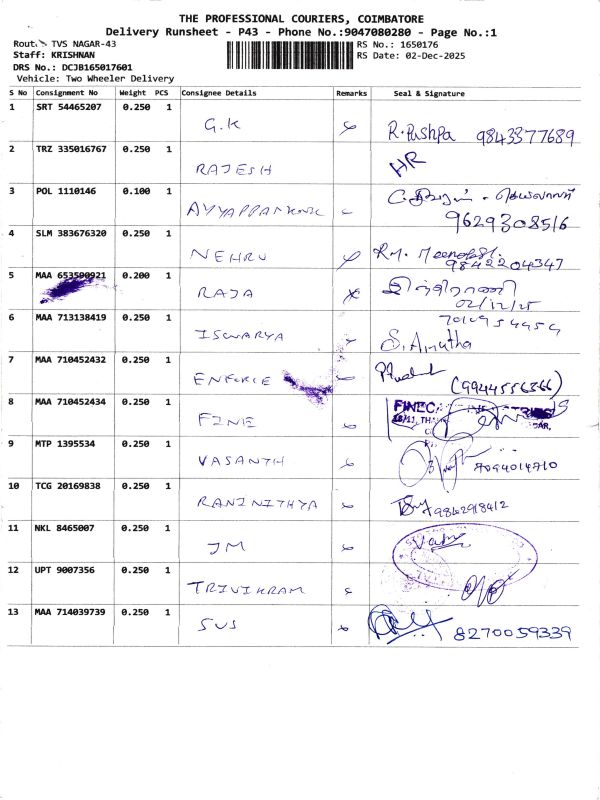 THE PROFESSIONAL COURIERS, COIMBATORE
Delivery Runsheet - P43 - Phone No.:9047080280 - Page No.:1
Route: TVS NAGAR-43 RS No.: 1650176
Staff: KRISHNAN RS Date: 02-Dec-2025
DRS No.: DCJB165017601
Vehicle: Two Wheeler Delivery
S No Consignment No Weight PCS Consignee Details Remarks Seal & Signature
1 SRT 54465207 0.250 1
G.K R.Pushpa 9843377689
2 TRZ 335016767 0.250 1
RAJESH HR
3 POL 1110146 0.100 1
9629308516
4 SLM 383676320 0.250 1
NEHRU RM. 9842204347
5 MAA 653500921 0.200 1
RAJA இந்திராணி
02/12/25
6 MAA 713138419 0.250 1
ISWARYA S. Amutha
7 MAA 710452432 0.250 1
ENFORCE (9944556366)
8 MAA 710452434 0.250 1
FINE
9 MTP 1395534 0.250 1
VASANTH 7094014710
10 TCG 20169838 0.250 1
RANINITHYA 9842918412
11 NKL 8465007 0.250 1
JM
12 UPT 9007356 0.250 1
TRIVIKRAM
13 MAA 714039739 0.250 1
SVS 8270059339